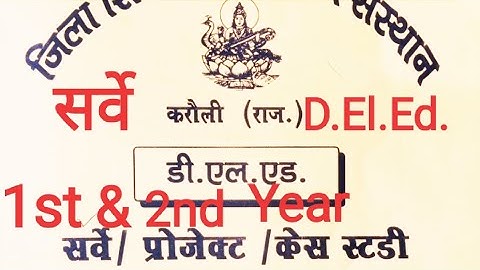 जिला संस्थान
सर्वे करौली (राज.) D.El.Ed.
डी.एल.एड.
1st & 2nd Year
सर्वे/ प्रोजेक्ट /केस स्टडी